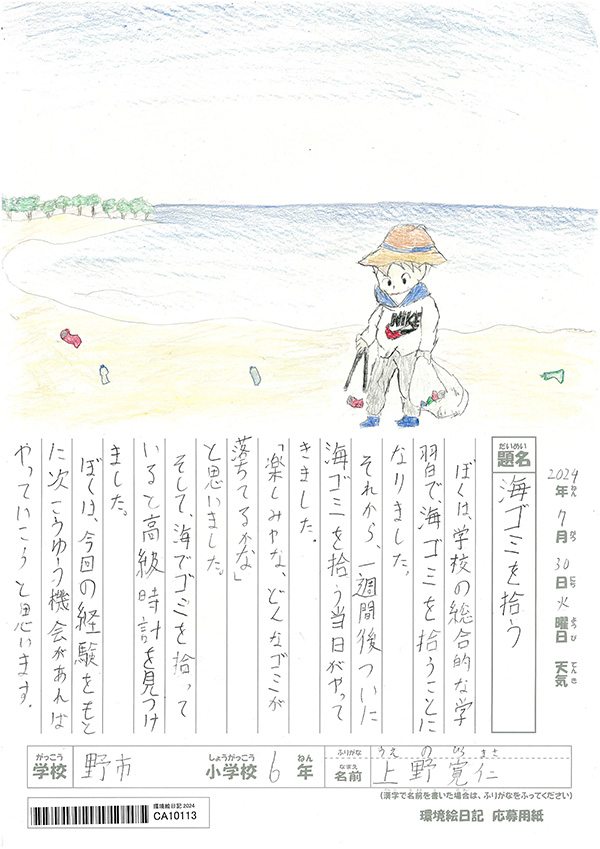 NIKE
2024年ねん 7月がつ 30日にち 火曜日ようび 天気てんき
だいめい
題名
海ゴミを拾う
ぼくは、学校の総合的な学
習で、海ゴミを拾うことに
なりました。
それから、一週間後ついに
海ゴミを拾う当日がやって
きました。
「楽しみやな、どんなゴミが
落ちてるかな」
と思いました。
そして、海でゴミを拾って
いると高級時計を見つけ
ました。
ぼくは、今回の経験をもと
に次こうゆう機会があれば
やっていこうと思います。
がっこう
学校
野市
しょうがっこう
小学校
6
ねん
年
ふりがな
うえ の ひろ まさ
なまえ
名前
上野寛仁
(漢字で名前を書いた場合は、ふりがなをふってください)
環境絵日記 2024
CA10113
環境絵日記 応募用紙